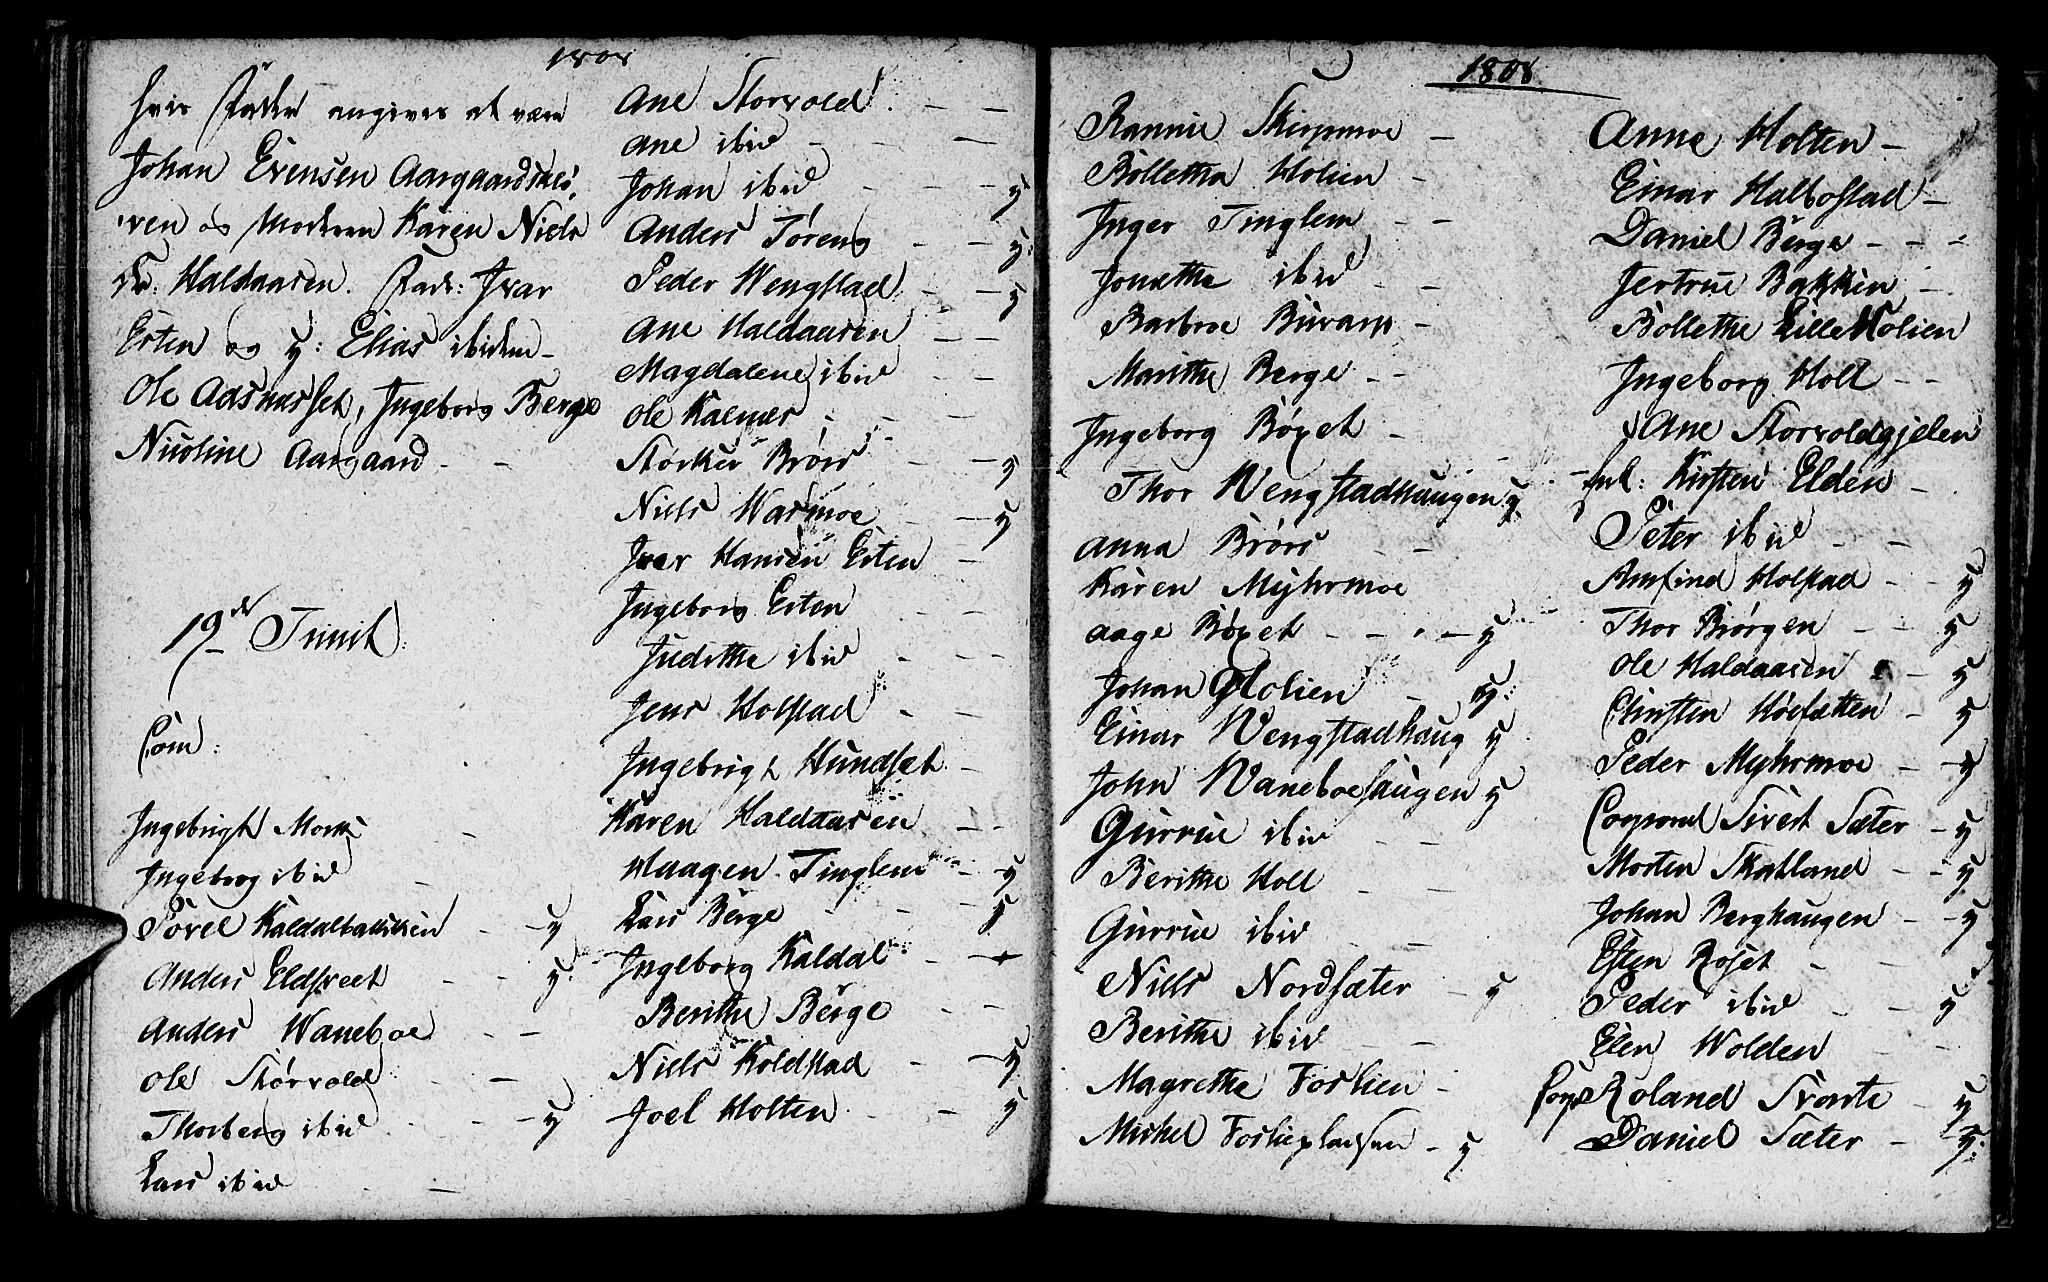 1808
hvis Fader angives at være
Johan Evensen Aargaards
og Moderen Karen Niels
dr: Haldaasen. Fadr: Ivar
Erten og y: Elias ibidem
Ole Aasnæsset, Ingeborg Berge
Nicoline Aargaard
19de Trinit:
Com:
Ingebrigt Mork
Ingeborg ibid
Sivel Kaldalbakken y
Anders Eldsveet y
Anders Waneboe
Ole Storvold
Thorberg ibid y
Lars ibid
Ane Storvold
Ane ibid
Johan ibid y
Anders Töreng y
Peder Wengstad y
Ane Haldaasen
Magdalene ibid
Ole Kalmer
Størker Brørs y
Niels Warmoe y
Iver Hansen Erten
Ingeborg Erten
Judithe ibid
Jens Holstad
Ingebrigt Hundset
Karen Haldaasen
Haagen Tinglem y
Lars Berge y
Ingeborg Kaldal
Berithe Berge
Niels Koldstad y
Joel Holten y
1808
Rannie Skirpmoe
Bollettha Holien
Inger Tinglem
Jonetha ibid
Barbroe Buvarp
Marithe Berge
Ingeborg Röset
Thor Wengstadhaugen y
Anna Brørs
Karen Myhrmoe
Aage Röset y
Johan Holien y
Einar Wengstadhaug y
John Waneboehaugen y
Gurrue ibid
Berithe Holl
Gurrue ibid
Niels Nordsæter y
Berithe ibid
Magretha Foslien
Mickel Fosliepladsen y
Anne Holten
Einar Halbostad
Daniel Berge
Jertrue Bakken
Bollethe Lille Holien
Ingeborg Holl
Ane Storvoldgjelen
Kirsten Elden
Peter ibid
Amfind Holstad y
Thor Brørgen y
Ole Haldaasen y
Christen Høefætten y
Peder Myhrmoe y
Corporal Sivert Sæter y
Morten Skatland y
Johan Berghaugen y
Esten Röset
Peder ibid y
Elen Wolden
Corp Roland Tronte y
Daniel Sæter y